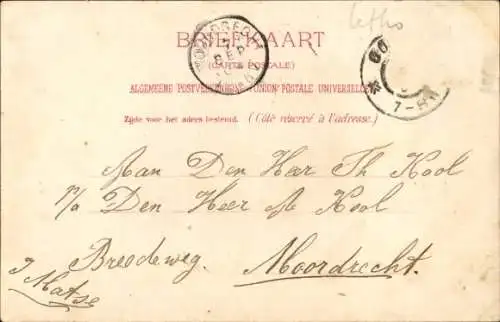 litho
BRIEFKAART
(CARTE POSTALE)
ALGEMEENE POSTVEREENIGING (UNION POSTALE UNIVERSELLE)
Zijde voor het adres bestemd. (Côté réservé à l'adresse.)
MOORDRECHT
SEP
7-8V
Aan Den Heer Th Kool
p/a Den Heer A Kool
Breedeweg.
Moordrecht.